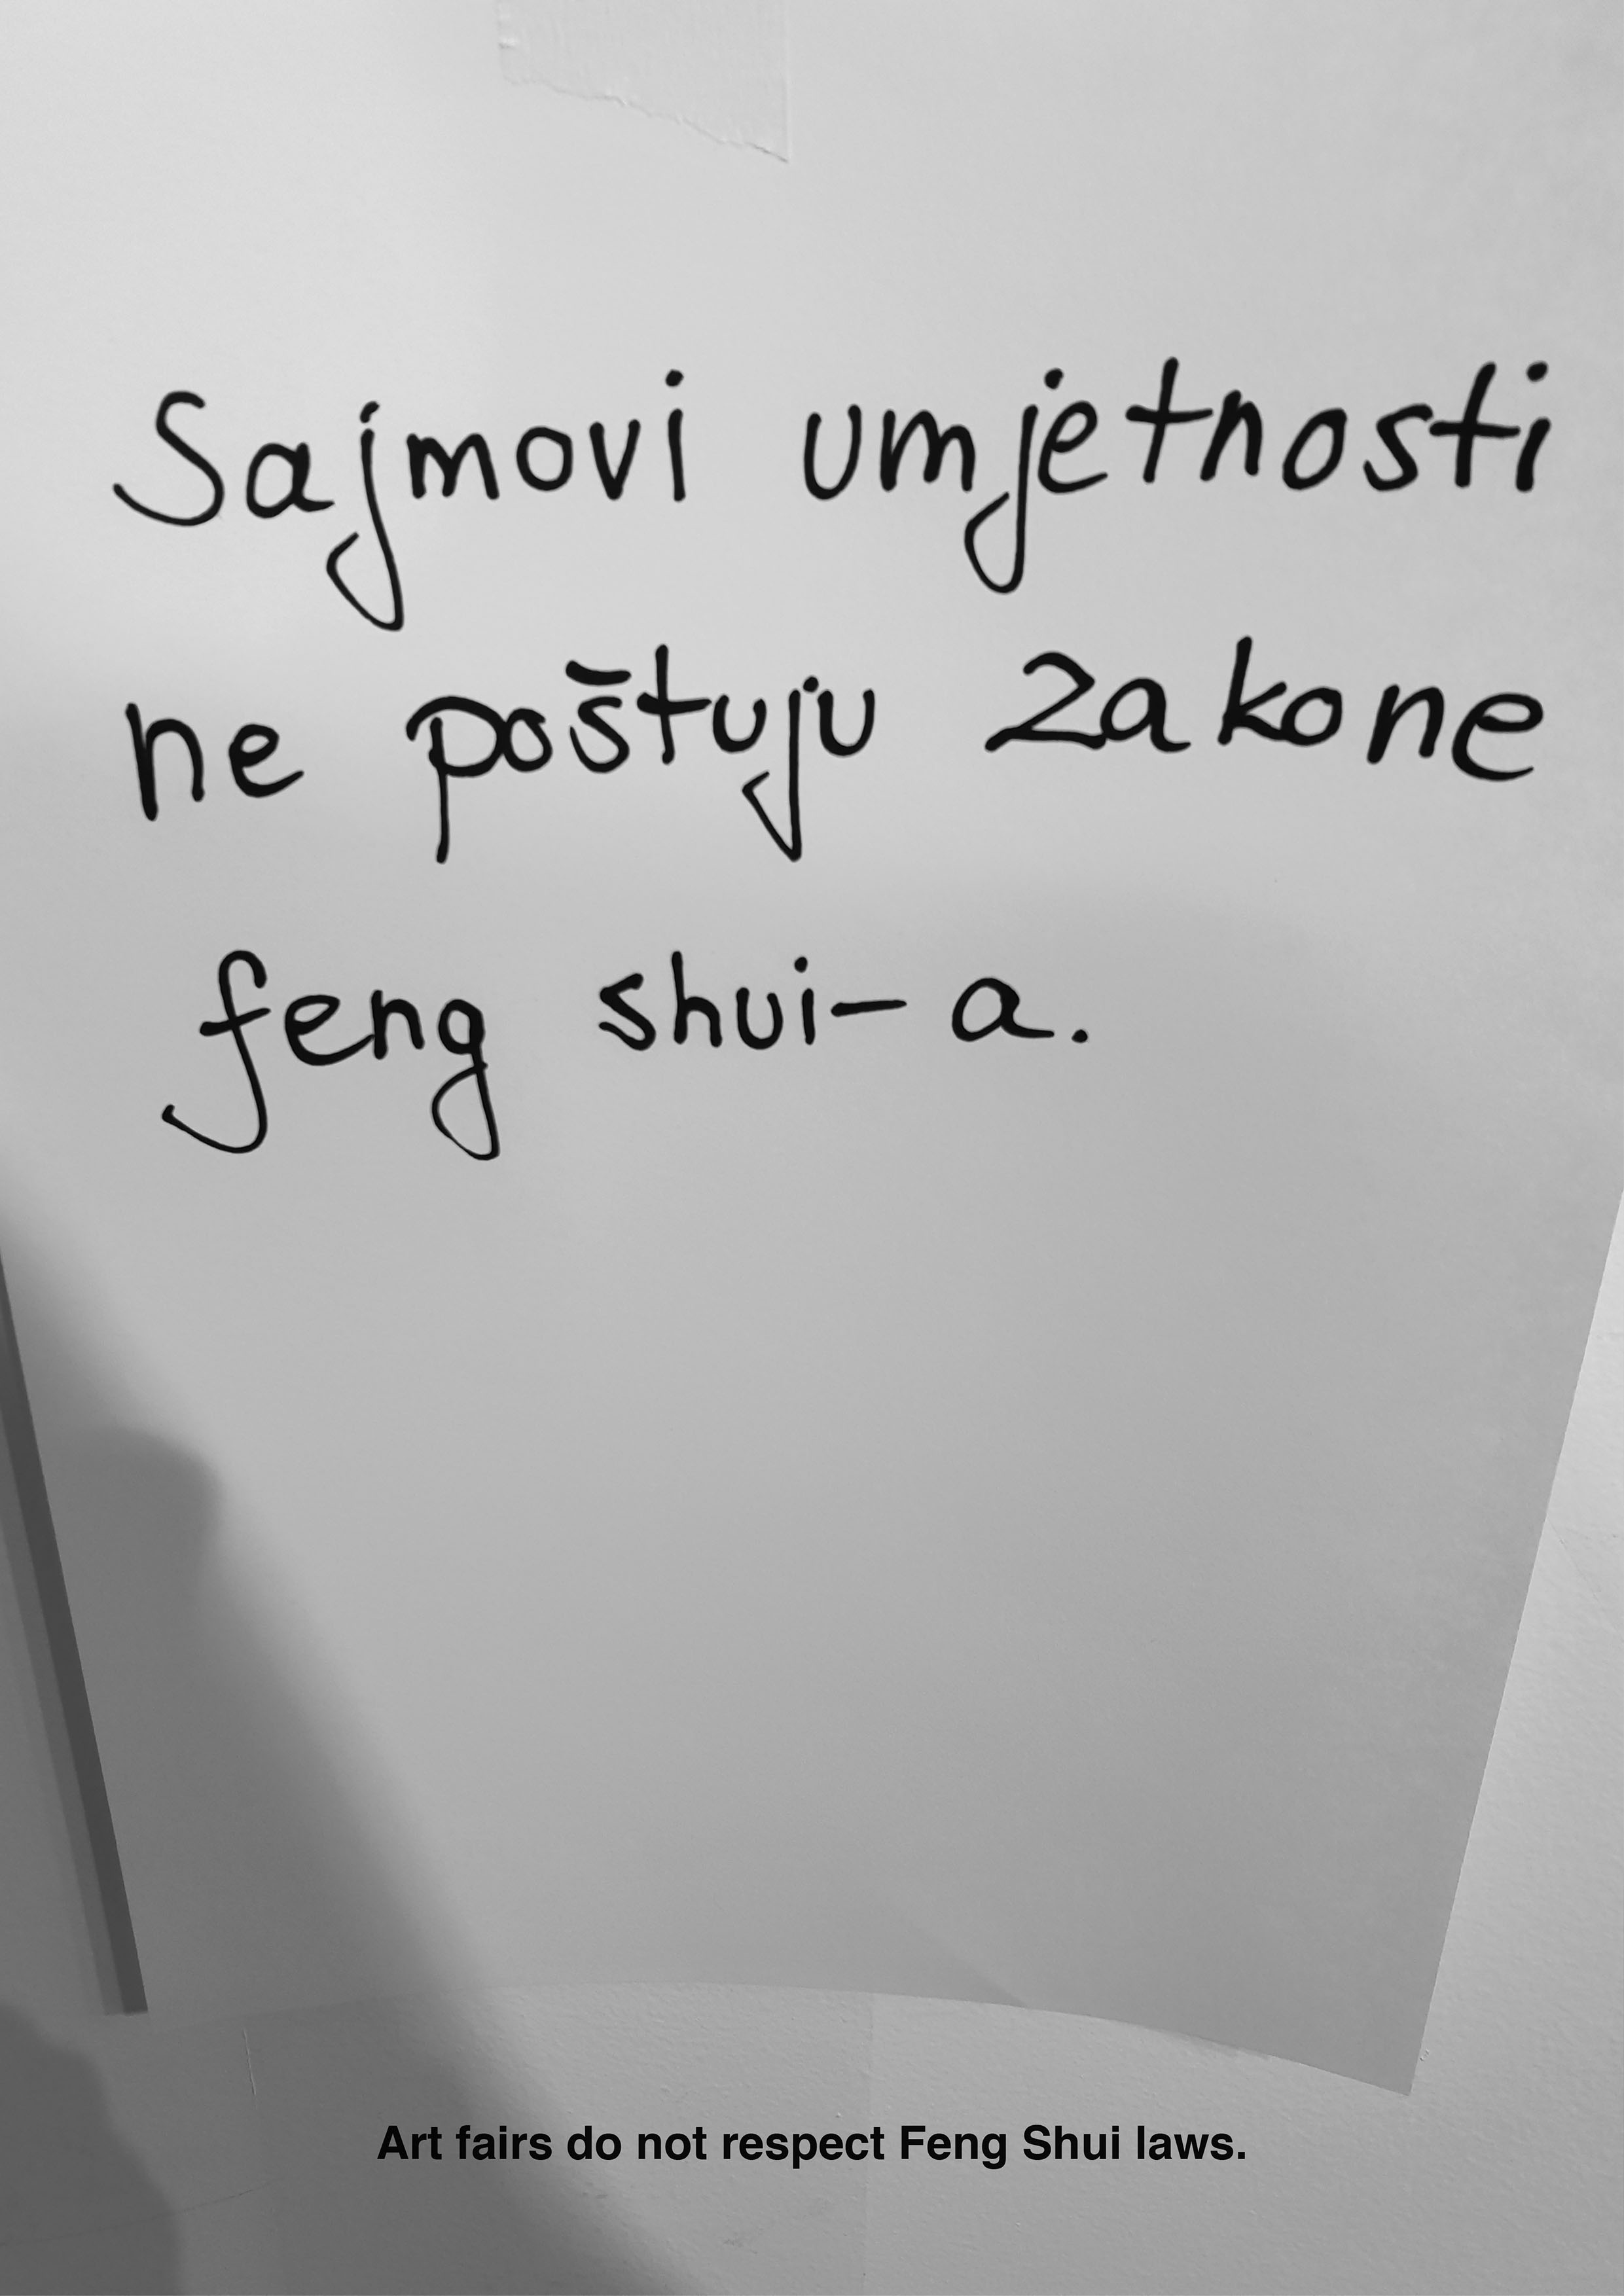 Sajmovi umjetnosti
ne poštuju zakone
feng shui-a.
Art fairs do not respect Feng Shui laws.